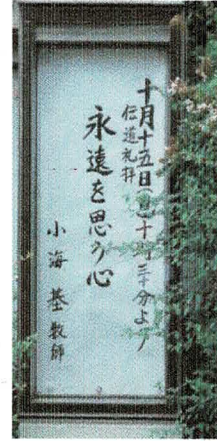 十月十五日(日)十時三十分より
伝道礼拝
永遠を思う心
小海基牧師